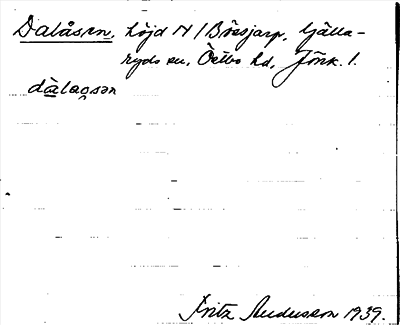 Dalåsen, höjd N / Bössjarp, Gälla-
ryds sn, Östbo hd, Jönk. l.
dàlaǫsən
Fritz Anderson 1939.